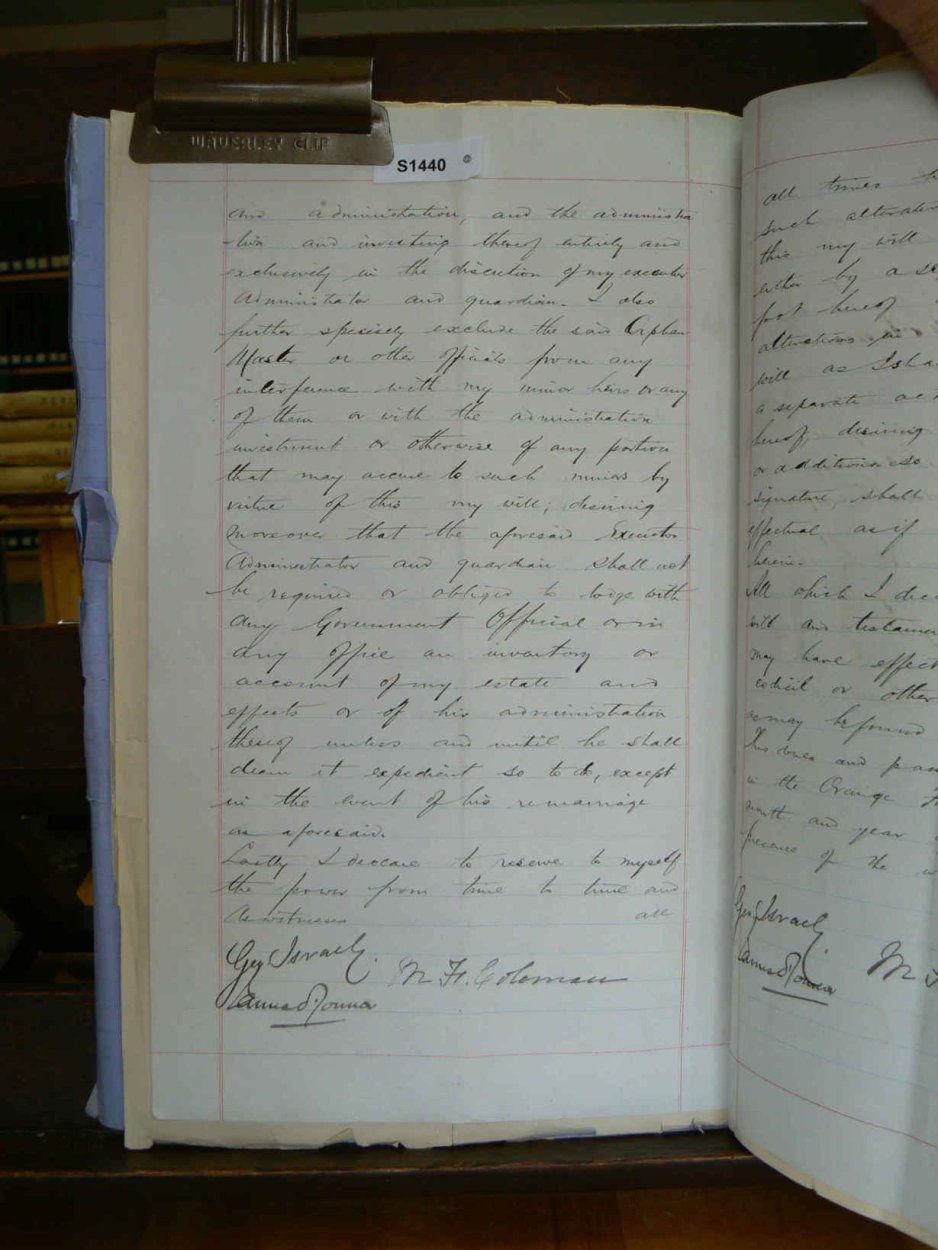 WAVERLEY CLIP
S1440
and administration, and the administra
tion and investing thereof entirely and
exclusively in the discretion of my executor
Administrator and guardian. I also
further specially exclude the said Orphan
Master or other officials from any
interference with my minor heirs or any
of them or with the administration
investment or otherwise of any portion
that may accrue to such minors by
virtue of this my will; desiring
moreover that the aforesaid Executor
Administrator and guardian shall not
be required or obliged to lodge with
any Government Official or in
any office an inventory or
account of my estate and
effects or of his administration
thereof unless and until he shall
deem it expedient so to do, except
in the event of his remarriage
as aforesaid.
Lastly I declare to reserve to myself
the power from time to time and
As witnesses all
Israel
M F. Coloman
James
all times
such alteration
this my will
either by a
foot hereof
alterations in
will as I sha
a separate
hereof desiring
or additions so
signature shall
effectual as if
herein.
All which I dec
will and testame
may have effect
codicil or other
as may be found
Thus done and pas
in the Orange
month and year
presence of the w
Israel
M F
James